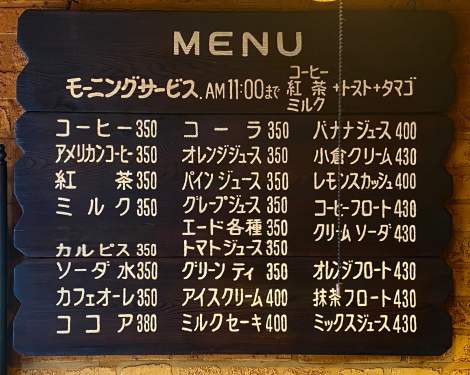 MENU
モーニングサービス.AM11:00まで コーヒー 紅茶 ミルク +トースト+タマゴ
コーヒー350
アメリカンコーヒー350
紅茶350
ミルク350
カルピス350
ソーダ水350
カフェオーレ350
ココア380
コーラ350
オレンジジュース350
パインジュース350
グレープジュース350
エード各種350
トマトジュース350
グリーンティ350
アイスクリーム400
ミルクセーキ400
バナナジュース400
小倉クリーム430
レモンスカッシュ400
コーヒーフロート430
クリームソーダ430
オレンジフロート430
抹茶フロート430
ミックスジュース430